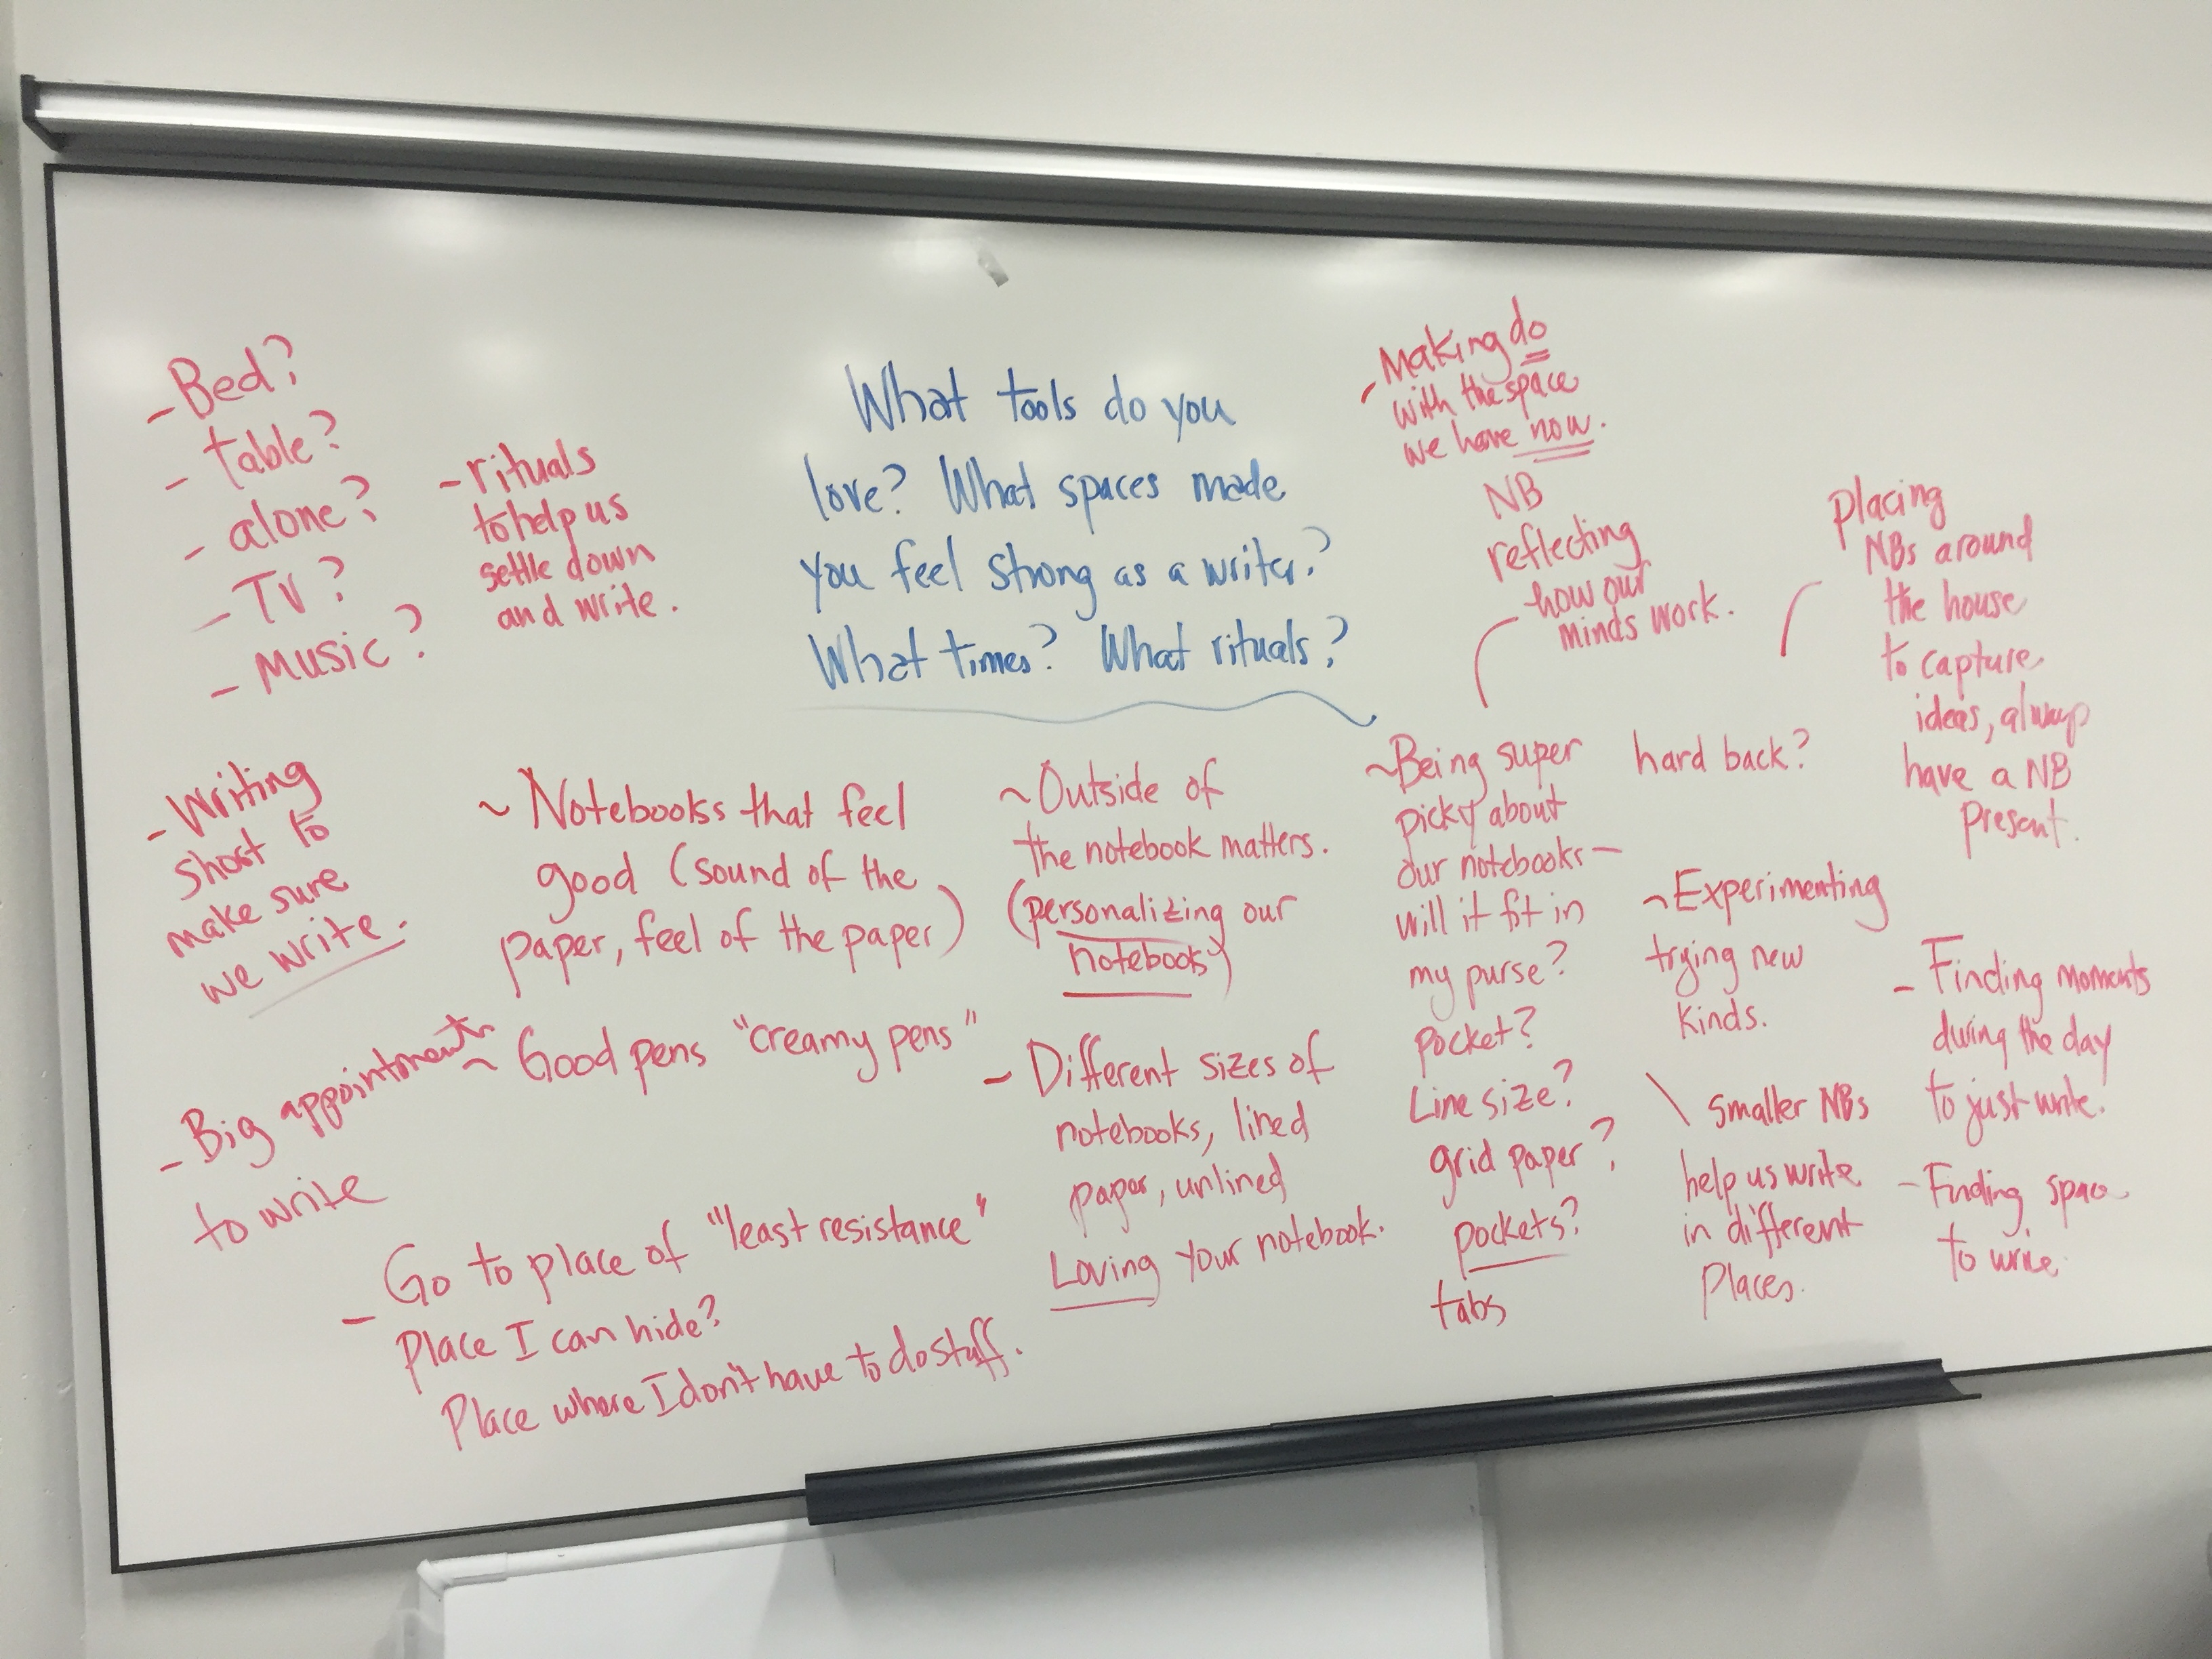 What tools do you
love? What spaces made
you feel strong as a writer?
What times? What rituals?
- Bed?
- table?
- alone?
- TV?
- Music?
- rituals
to help us
settle down
and write.
- Making do
with the space
we have now.
NB
reflecting
how our
minds work.
Placing
NBs around
the house
to capture
ideas, always
have a NB
present.
- Writing
short to
make sure
we write.
- Big appointments
to write
~ Notebooks that feel
good (sound of the
paper, feel of the paper)
~ Good pens "creamy pens"
- Go to place of "least resistance"
Place I can hide?
Place where I don't have to do stuff.
~ Outside of
the notebook matters.
(personalizing our
notebooks)
- Different sizes of
notebooks, lined
paper, unlined
Loving your notebook.
~ Being super
picky about
our notebooks -
will it fit in
my purse?
pocket?
Line size?
grid paper?
pockets?
tabs
hard back?
~ Experimenting
trying new
kinds.
\ smaller NBs
help us write
in different
places.
- Finding moments
during the day
to just write!
- Finding space
to write